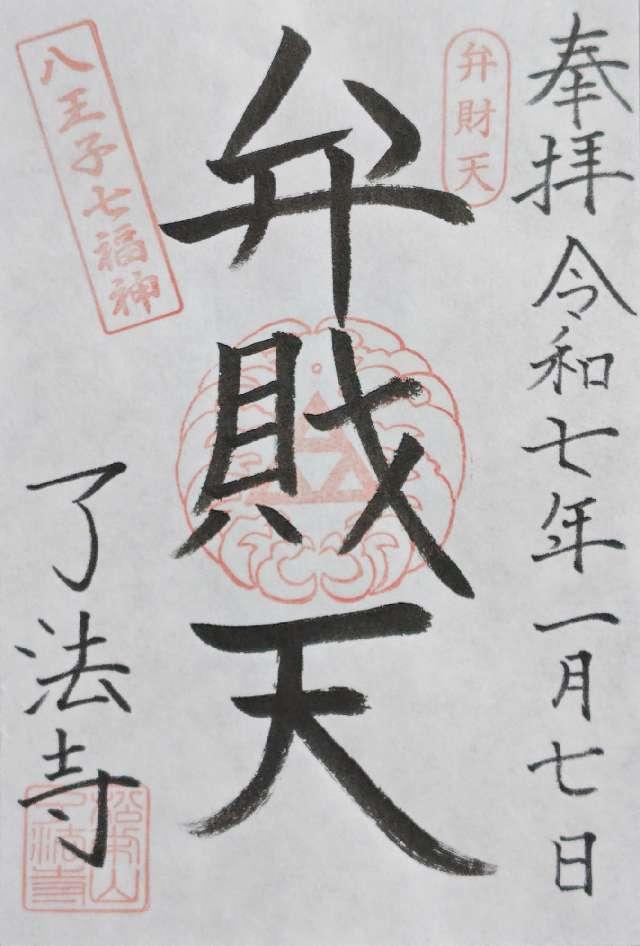 奉拝 令和七年一月七日
弁財天
弁財天
八王子七福神
了法寺
松栄山了法寺